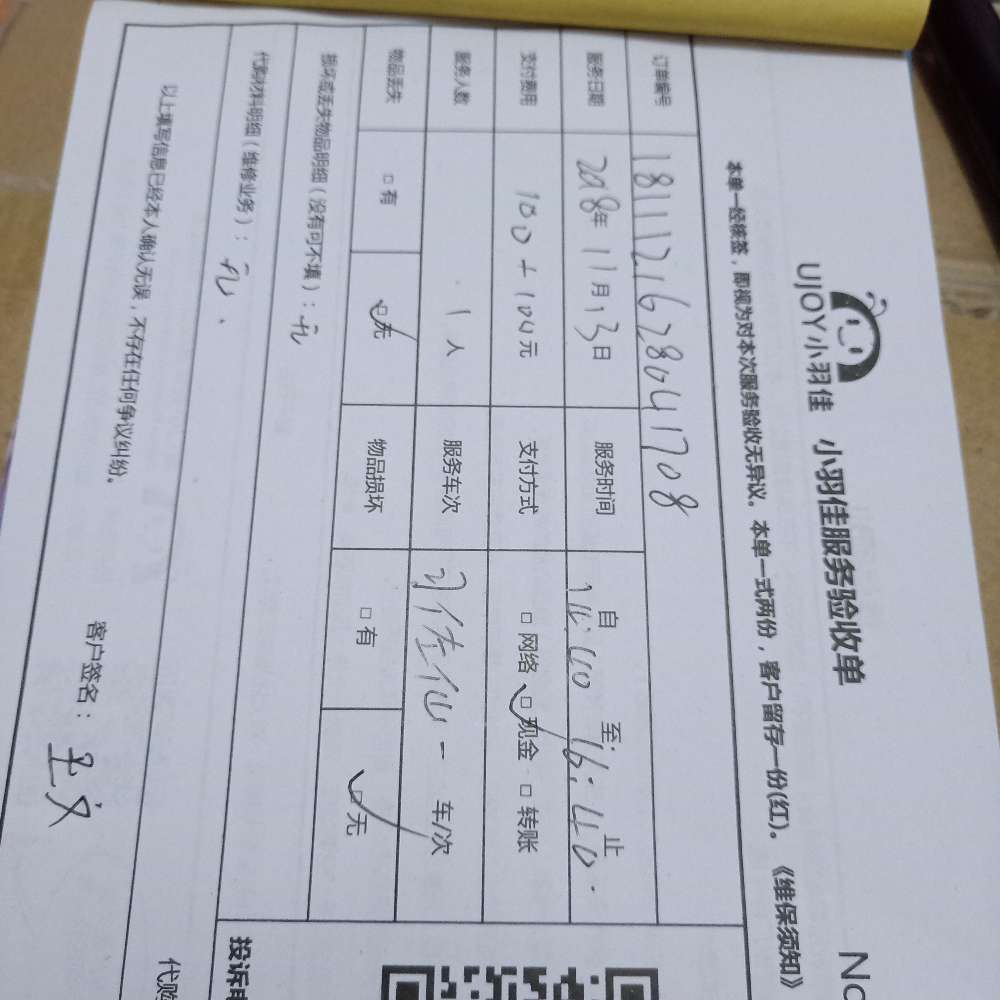 UJOY小羽佳 小羽佳服务验收单
本单一经核签，即视为对本次服务验收无异议。本单一式两份，客户留存一份(红)。《维保须知》
订单编号 181112162804 1708
服务日期 2018年 11月 13日 服务时间 自 14:40 至: 16:40 止
支付费用 100+100元 支付方式 □ 网络 □ 现金 □ 转账
服务人数 1 人 服务车次 一 车/次
物品丢失 □有 □无 物品损坏 □有 □无
损坏或丢失物品明细（没有可不填）：无
代购材料明细（维修业务）：无
以上填写信息已经本人确认无误，不存在任何争议纠纷。
客户签名：
No
投诉
代购